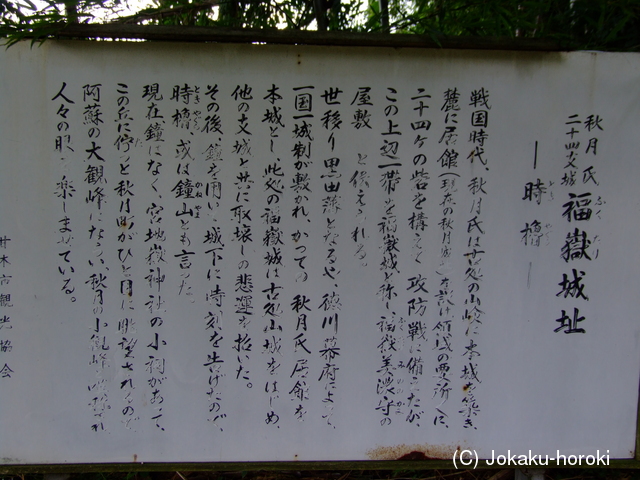 秋月氏
二十四支城
福嶽城址
ふく たけ
―時櫓―
とき やぐら
戦国時代、秋月氏は古処の山嶺に本城を築き、
麓に居館(現在の秋月城)を設け領域の要所に、
二十四ケの砦を構えて攻防戦に備えたが、
この上辺一帯を福嶽城と称し、福嶽美濃守の
屋敷 と伝えられる。
世移り黒田藩となるや、徳川幕府によって
一国一城制が敷かれ、かつての秋月氏居館を
本城とし此処の福嶽城は古処山城をはじめ、
他の支城と共に取壊しの悲運を招いた。
その後、鐘を用い、城下に時刻を告げたので、
時櫓、或は鐘山とも言った。
現在鐘はなく、宮地嶽神社の小祠があって、
この丘に佇つと秋月町がひと目に眺望されるので
阿蘇の大観峰にならい、秋月の小観峰と
人々の眼を楽しませている。
甘木市観光協会
(C) Jokaku-horoki